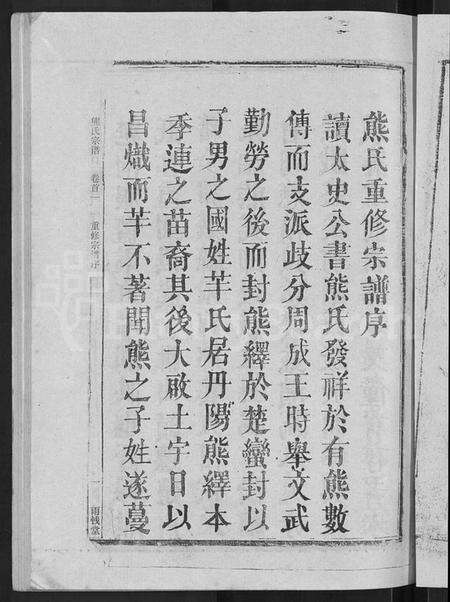 熊氏重修宗譜序
讀太史公書熊氏發祥於有熊數
傳而支派歧分周成王時舉文武
勤勞之後而封熊繹於楚蠻封以
子男之國姓芊氏居丹陽熊繹本
季連之苗裔其後大啟土宇日以
昌熾而芊不著聞熊之子姓遂蔓
熊氏宗譜 卷首 重修宗譜序 一